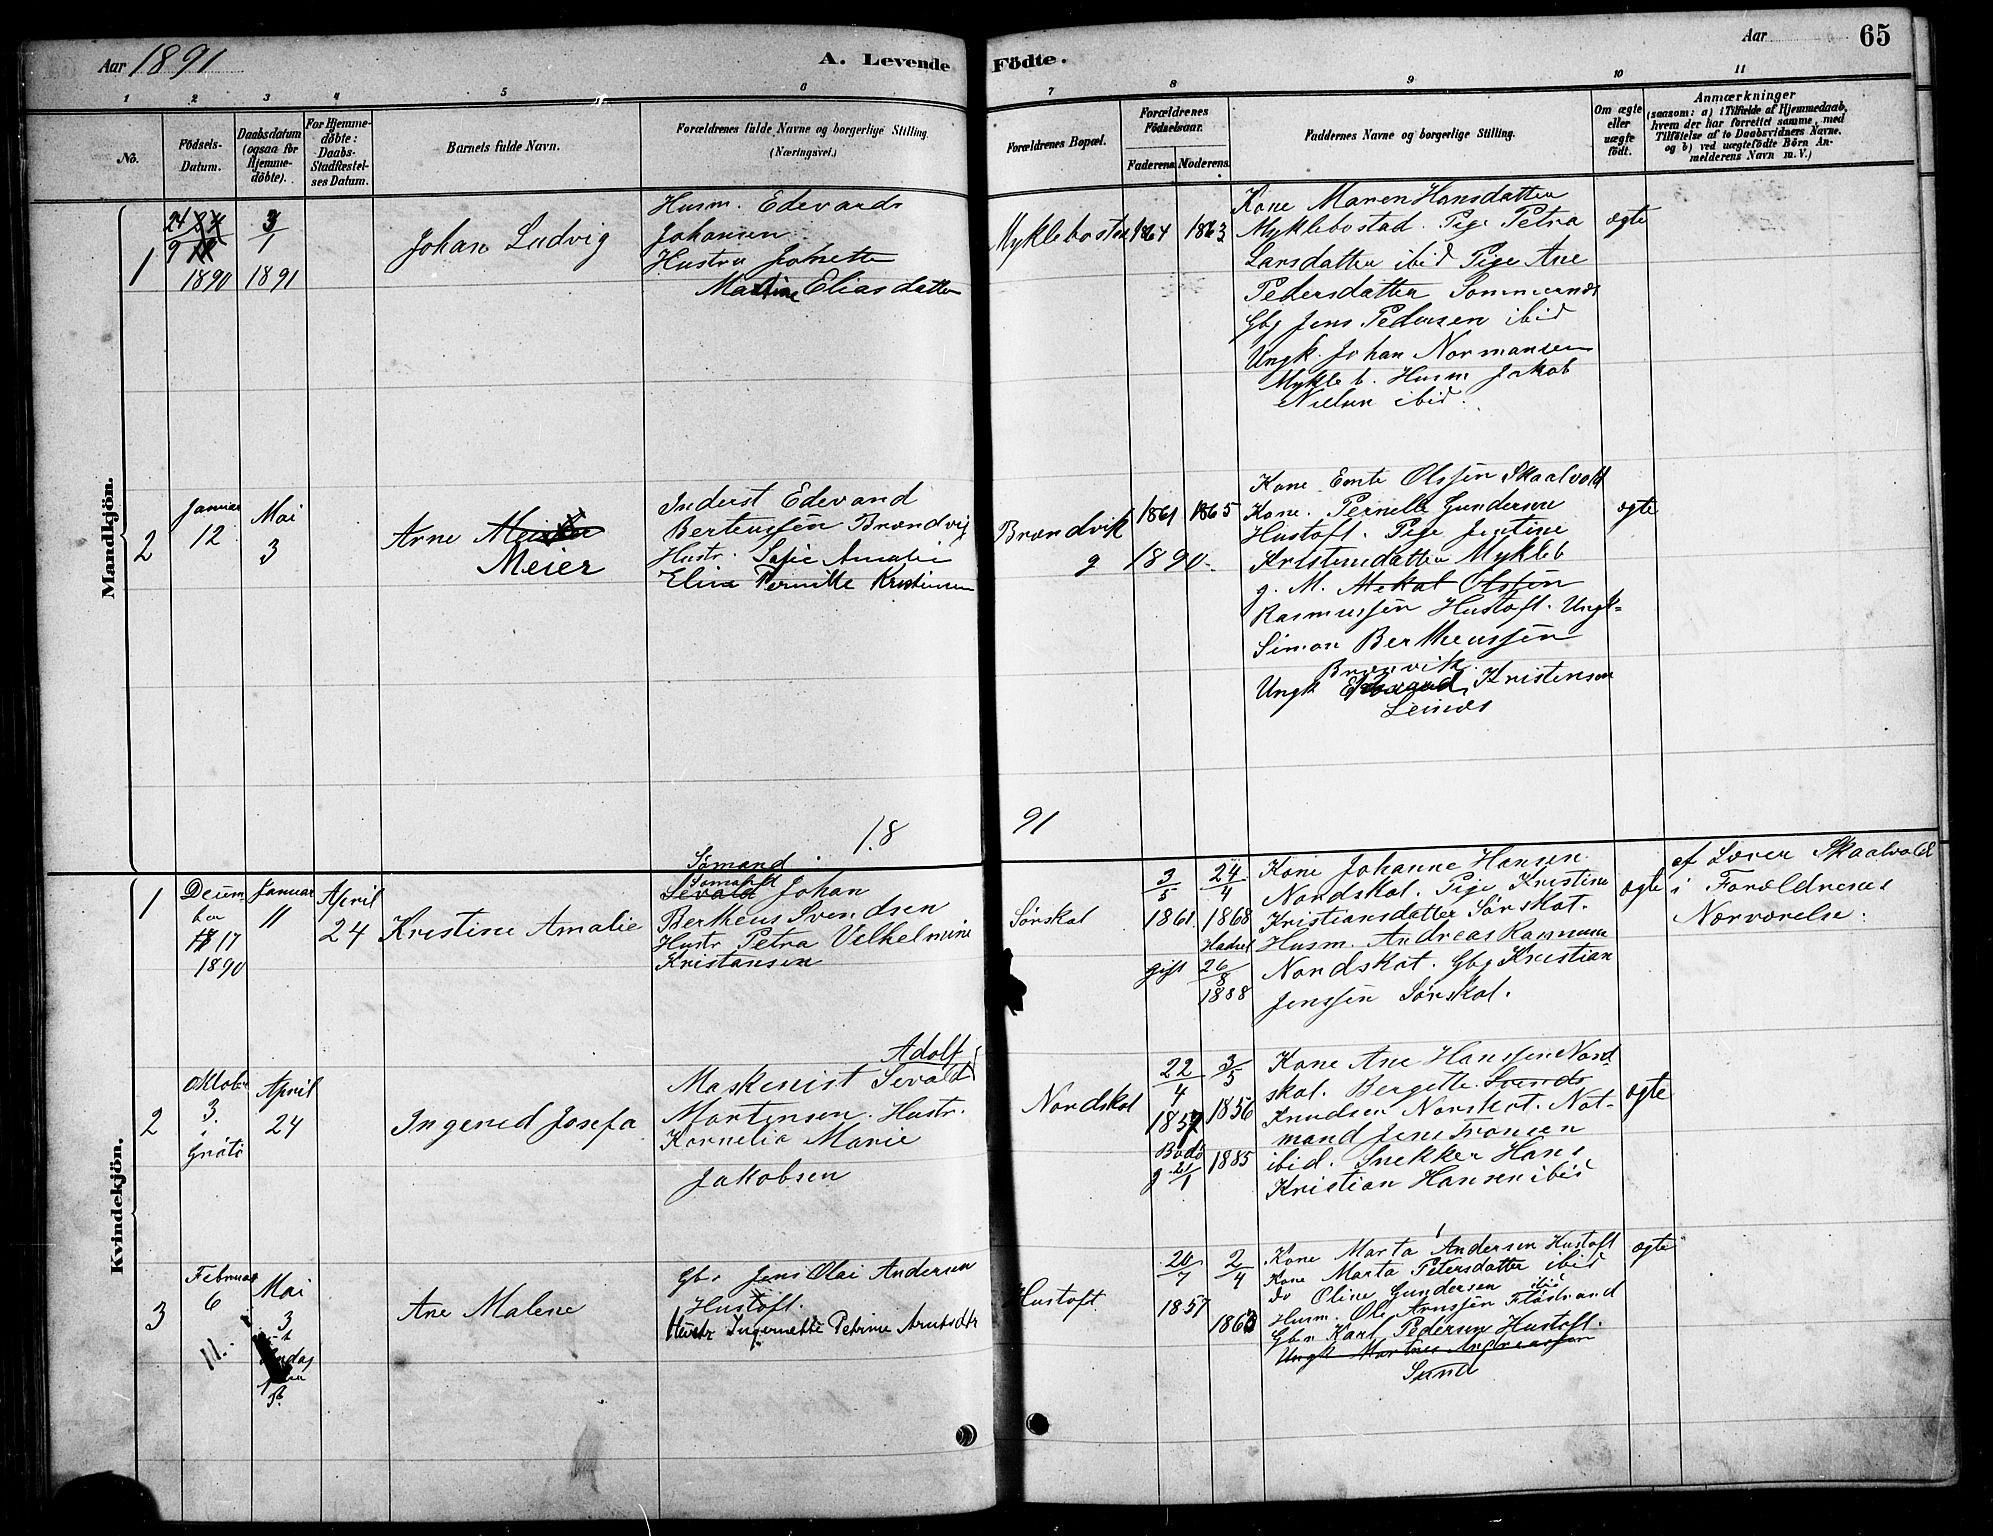 Aar 1891
A. Levende
Födte.
Aar
65
1 2 3 4 5 6 7 8 9 10 11
No.
Födsels-
Datum.
Daabsdatum
(ogsaa for
Hjemme-
döbte).
For Hjemme-
döbte:
Daabs-
Stadfæstel-
ses Datum.
Barnets fulde Navn.
Forældrenes fulde Navne og borgerlige Stilling.
(Næringsvei.)
Forældrenes Bopæl.
Forældrenes
Födselsaar.
Faderens. Moderens.
Faddernes Navne og borgerlige Stilling.
Om ægte
eller
uægte
født.
Anmærkninger
(saasom: a) i Tilfælde af Hjemmedaab,
hvem der har forrettet samme, med
Tilföielse af to Daabsvidners Navne.
og b) ved uægtefödte Börn An-
melderens Navn m. V.)
Mandkjön.
1
24
9
1890
3
1
1891
Johan Ludvig
Husm. Edevards
Johansen
Hustru Johnette
Elias datter
Myklebostad
1864
1863
Kone Maren Hansdatter
Myklebostad. Pige Petra
Larsdatter ibid Pige Ane
Pedersdatter Sommernes
Gbg Jens Pedersen ibid
Ungk. Johan Normansen
Mykleb. Husm Jakob
Nielsen ibid.
ægte
2
Januar
12
Mai
3
Arne
Meier
Inderst Edevand
Berteussen Brændvig
Hustr. Sofie Amalie
Elisa Pernille Kristensen
Brændvik
g 1890.
1861
1865
Kone Emte Olssen Skaalvold
Kone. Pernelle Gundersen
Hustoft. Pige Jentine
Kristensdatter Mykleb
g. M. Mekal Olssen
Rasmussen Hustoft. Ungk-
Simon Bertheussen
Brænvik.
Ungk Edevard Kristensen
Leines
ægte
1.8
91
Kvindekjön.
1
Decem
ber
17
1890
Januar
11
April
24
Kristine Amalie
Sømand
Sevald Johan
Bertheus Svendsen
Hustr Petra Velhelmine
Kristansen
Sørskot
3
5
1861.
24
4
1868
Hadsel
gift 26
8
1888
Kone Johanne Hansen
Nordskot. Pige Kristine
Kristiansdatter Sørskot.
Husm. Andreas Rasmussen
Nordskot. Gbg Kristian
Jenssen Sørskot.
ægte
af Lærer Skaalvold
i Forældrenes
Nærværelse.
2
Oktober
3.
i
Grøtø
April
24
Ingerid Josefa
Adolf
Maskenist Sevald
Mortensen. Hustr.
Kornelia Marie
Jakobsen
Nordskot
22
4
1857
3
5
1856
Bodø
g 21
1
1885
Kone Ane Hanssen Nord
skot. Bergette Svends
Knudsen Norskot. Not-
mand Jens Transen
ibid. Snekker Hans
Kristian Hansen ibid
ægte
3
Februar
6
Mai
3
Ane Malene
Gbr Jens Olai Andersen
Hustoft.
Hustr Ingernette Petrine Arntsdtr
Hustoft
20
7
1857
2
4
1863
Kone Marta Andersen Hustoft
Kone Marta Petersdatter ibid
do Oline Gundersen ibid
Husm. Ole Arnssen Flöstrand
Gbr Karl Pedersen Hustoft.
Ungk Martnus Andreassen
Sund
ægte